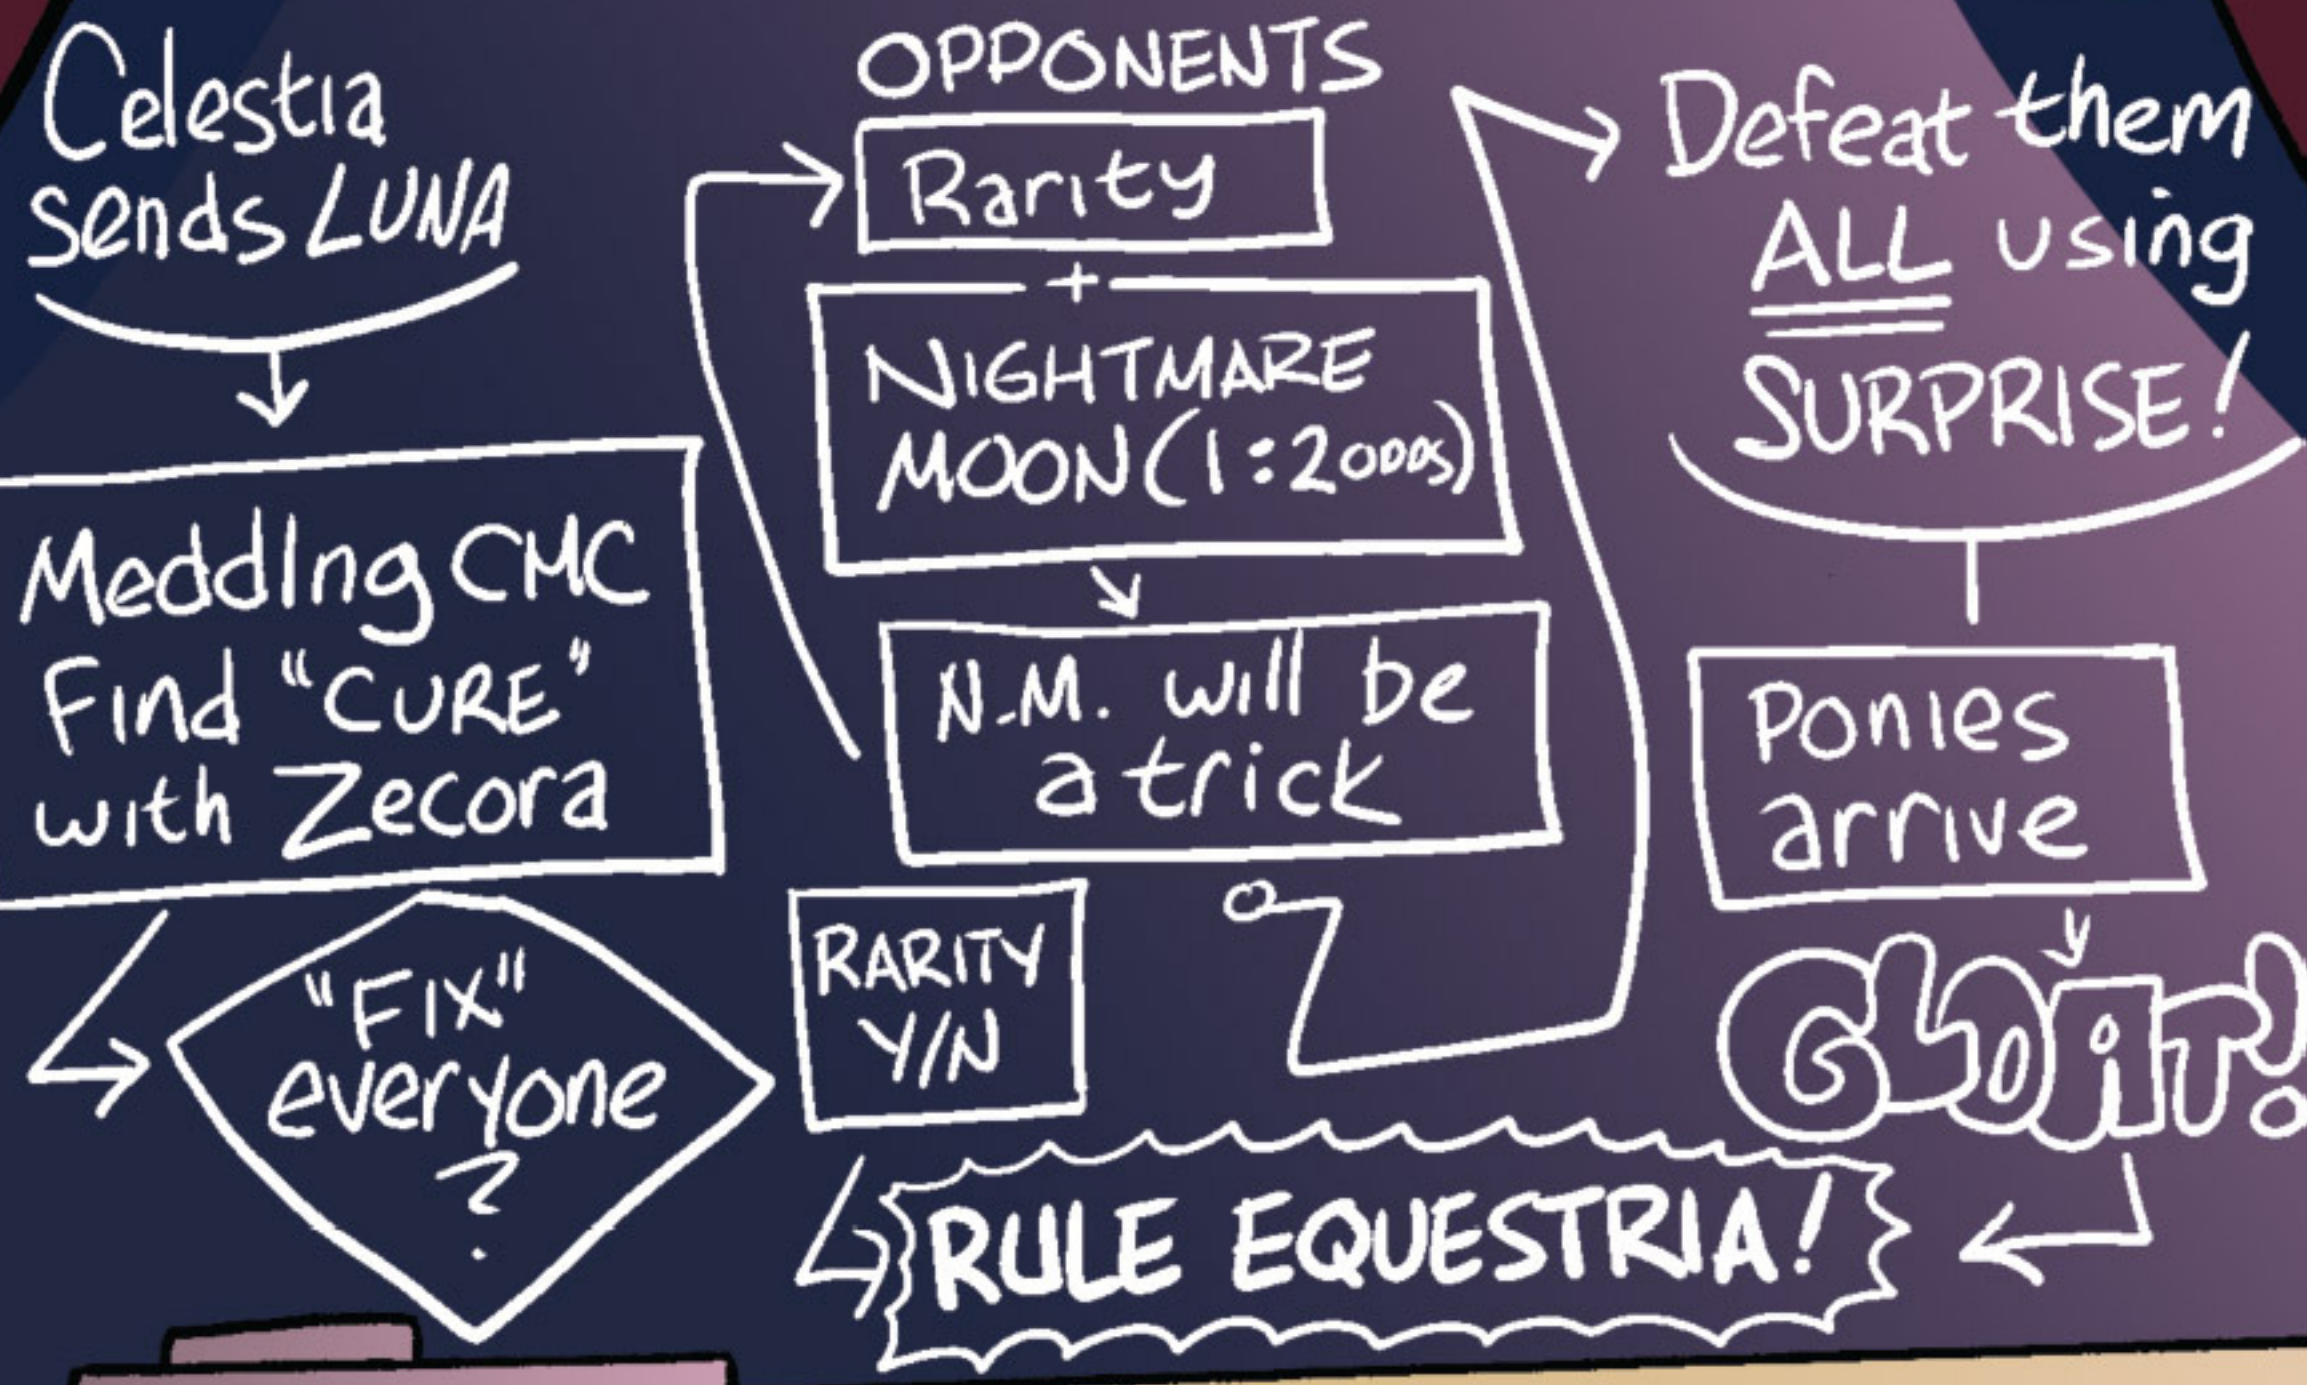 Celestia
sends LUNA
Medding CMC
Find "CURE"
with Zecora
"FIX"
everyone
?
OPPONENTS
Rarity
+
NIGHTMARE
MOON (1:2 ODDS)
N.M. will be
a trick
RARITY
Y/N
Defeat them
ALL using
SURPRISE!
Ponies
arrive
GLOAT!
RULE EQUESTRIA!